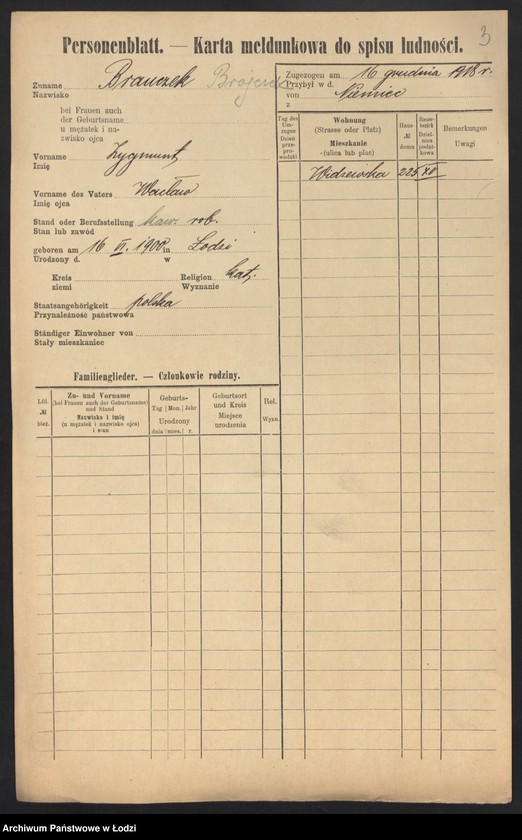 3
Personenblatt. — Karta meldunkowa do spisu ludności.
Zuname Brauczek
Nazwisko
bei Frauen auch
der Geburtsname
u mężatek i na-
zwisko ojca
Vorname Zygmunt
Imię
Vorname des Vaters Wacław
Imię ojca
Stand oder Berufsstellung kaw. rob.
Stan lub zawód
geboren am 16 VI. 1900 in Łodzi
Urodzony d. w
Kreis Religion kat.
ziemi Wyznanie
Staatsangehörigkeit polska
Przynależność państwowa
Ständiger Einwohner von
Stały mieszkaniec
Zugezogen am 16 grudnia 1918 r.
Przybył w d.
von Niemiec
z
Tag des Um-zuges Dzień prze-prowadzki
Wohnung
(Strasse oder Platz)
Mieszkanie
(ulica lub plac)
Haus-
№
domu
Bemerkungen
Uwagi
Widzewska 225
Familienglieder. — Członkowie rodziny.
Lfd.
№
bież.
Zu- und Vorname
(bei Frauen auch der Geburtsname)
und Stand
Nazwisko i imię
(u mężatek i nazwisko ojca)
i stan
Geburts-
Tag | Mon. | Jahr
Urodzony
dnia | mies. | r.
Geburtsort
und Kreis
Miejsce
urodzenia
Rel.
Wyzn.
Archiwum Państwowe w Łodzi